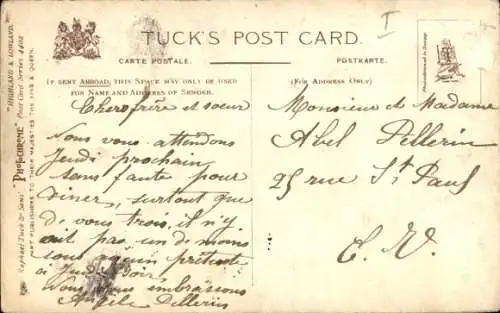 TUCK'S POST CARD.
CARTE POSTALE.
POSTKARTE.
IF SENT ABROAD, THIS SPACE MAY ONLY BE USED
FOR NAME AND ADDRESS OF SENDER.
(FOR ADDRESS ONLY)
"HIGHLAND & LOWLAND."
"PHOTOCHROME" Post Card Series 4408
Raphael Tuck & Sons'
ART PUBLISHERS TO THEIR MAJESTIES THE KING & QUEEN.
Chers frère et soeur
Nous vous attendons
Jeudi prochain
sans faute pour
diner, surtout que
de vous trois, il n'y
ait pas un de moins
sous aucun prétexte
à Jeudi soir
Nous vous embrassons
Angèle Pellerin
Monsieur et Madame
Abel Pellerin
25 rue St Paul
E. V.